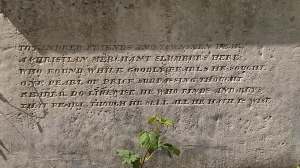 TO KINDRED FRIENDS AND
A CHRISTIAN MERCHANT SLUMBERS HERE
WHO FOUND WHILE GOODLY PEARLS HE SOUGHT
ONE PEARL OF PRICE SURPASSING THOUGHT
READER DO LIKEWISE HE WHO FINDS AND BUYS
THAT PEARL THOUGH HE SELL ALL HE HATH IS WISE